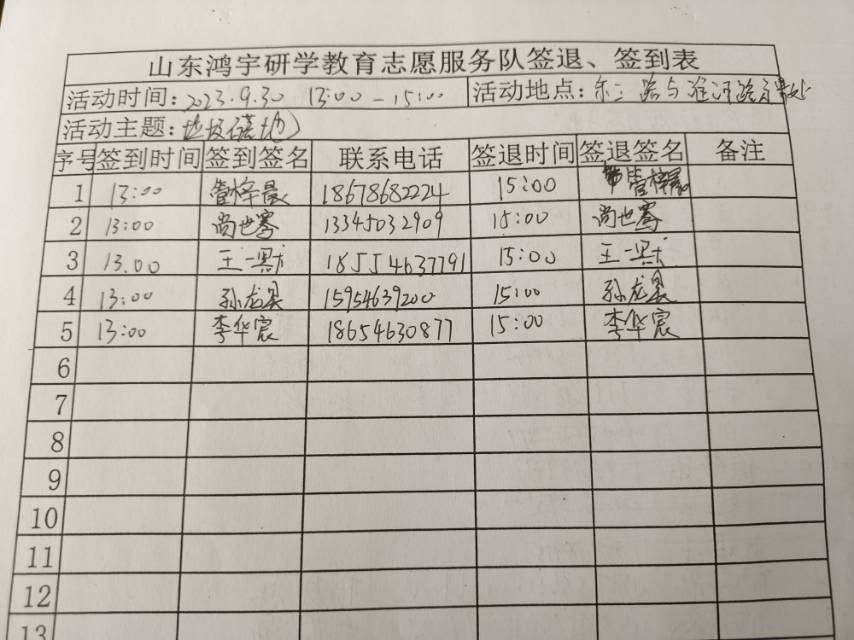 山东鸿宇研学教育志愿服务队签退、签到表
活动时间：2023.9.30 13:00-15:00 活动地点：东三路与淮河路
活动主题：垃圾落地
序号 签到时间 签到签名 联系电话 签退时间 签退签名 备注
1 13:00 管梓晨 18678682224 15:00 管梓晨
2 13:00 尚世骞 13345032909 15:00 尚世骞
3 13.00 王一 18554637791 15:00 王一
4 13:00 孙龙昊 15954639200 15:00 孙龙昊
5 13:00 李华宸 18654630877 15:00 李华宸
6
7
8
9
10
11
12
13